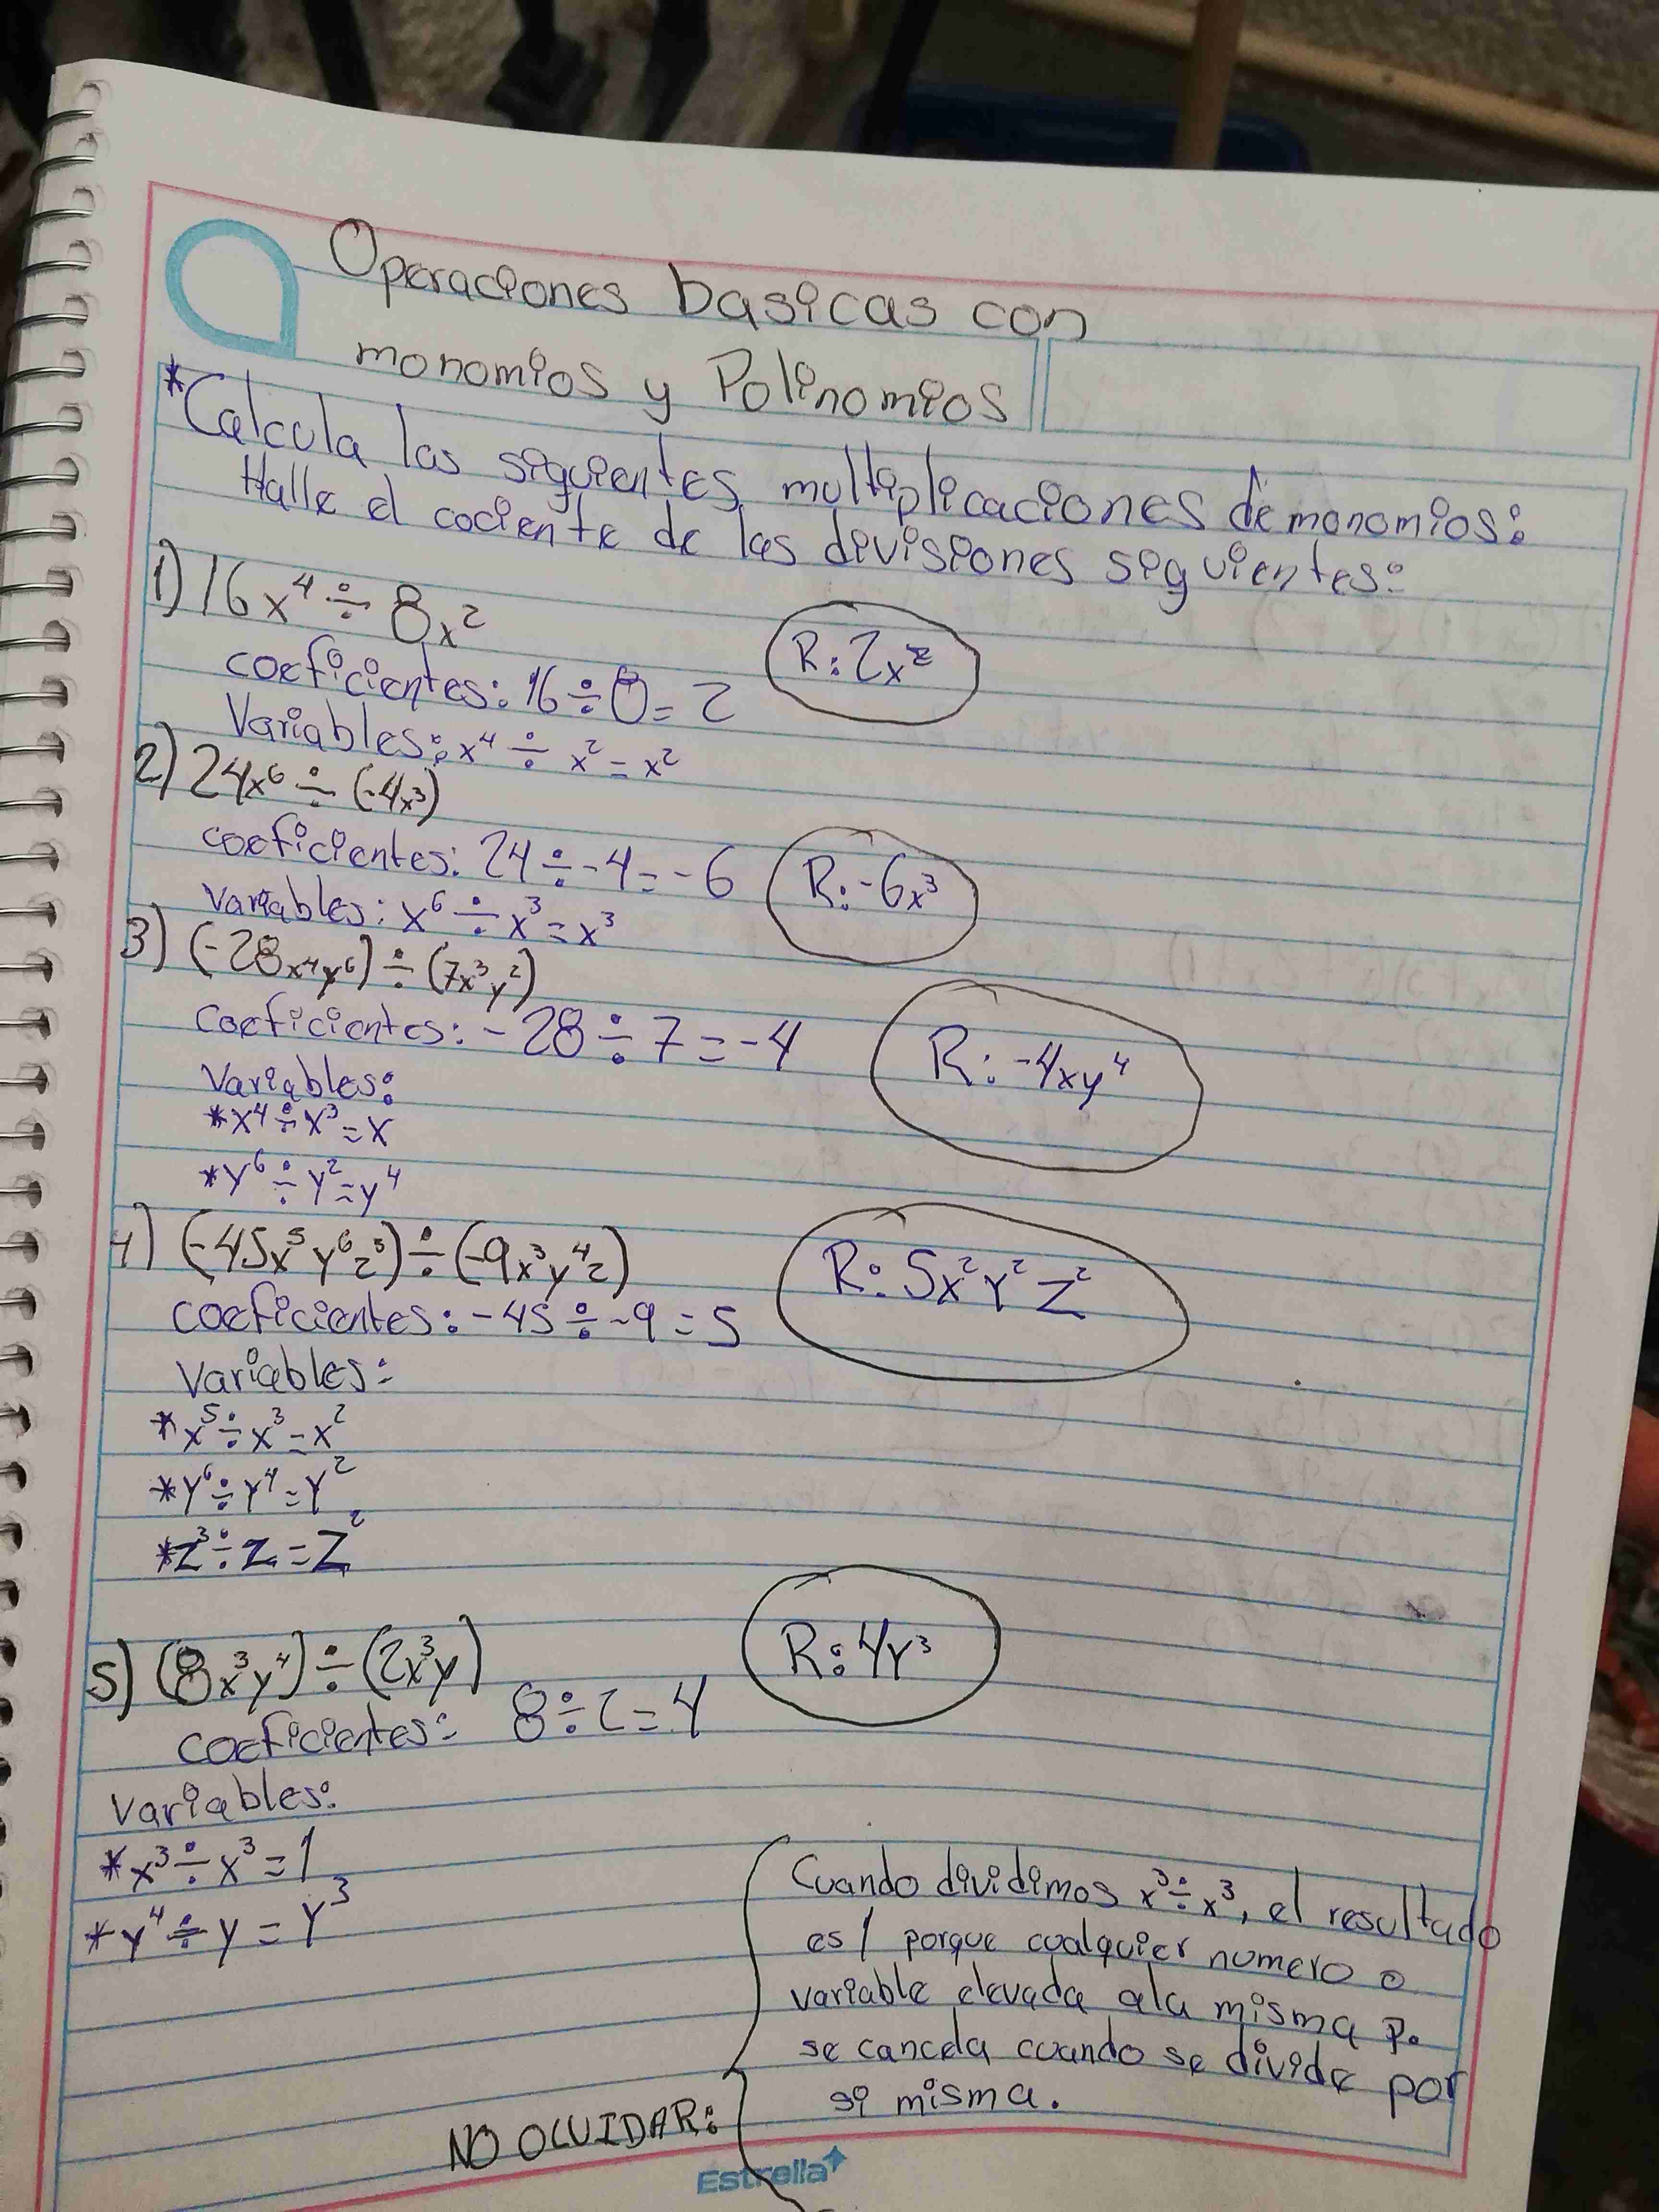 Operaciones basicas con
monomios y Polinomios
*Calcula las siguientes multiplicaciones de monomios:
Halle el cociente de las divisiones siguientes:
1) 16x⁴ ÷ 8x²
R: 2x²
coeficientes: 16 ÷ 8 = 2
Variables: x⁴ ÷ x² = x²
2) 24x⁶ ÷ (-4x³)
coeficientes: 24 ÷ -4 = -6
R: -6x³
variables: x⁶ ÷ x³ = x³
3) (-28x⁴y⁶) ÷ (7x³y²)
coeficientes: -28 ÷ 7 = -4
R: -4xy⁴
Variables:
*x⁴ ÷ x³ = x
*y⁶ ÷ y² = y⁴
4) (-45x⁵y⁶z³) ÷ (-9x³y⁴z)
R: 5x²y²z²
coeficientes: -45 ÷ -9 = 5
variables:
*x⁵ ÷ x³ = x²
*y⁶ ÷ y⁴ = y²
*z³ ÷ z = z²
5) (8x³y⁴) ÷ (2x³y)
R: 4y³
coeficientes: 8 ÷ 2 = 4
variables:
*x³ ÷ x³ = 1
*y⁴ ÷ y = y³
NO OLVIDAR:
Cuando dividimos x³ ÷ x³, el resultado
es 1 porque cualquier numero o
variable elevada ala misma P.
se cancela cuando se divide por
si misma.
Estrella